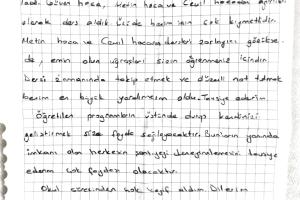 hoca, Metin hoca ve Cemil hocadan ayrıntılı
olarak ders aldık. Üçüde benim için çok kıymetlidir.
Metin hoca ve Cemil hocanın dersleri zorlayıcı gözükse
de, emin olun uğraşları sizin öğrenmeniz içindir.
Dersi zamanında takip etmek ve düzenli not tutmak
benim en büyük yardımcım oldu. Tavsiye ederim.
Öğretilen programların üstünde durup kendinizi
geliştirmek size fayda sağlayacaktır. Bunların yanında
imkanı olan herkesin şantiyeyi deneyimlemesini tavsiye
ederim çok faydası olacaktır.
Okul sürecinden çok keyif aldım. Dilerim